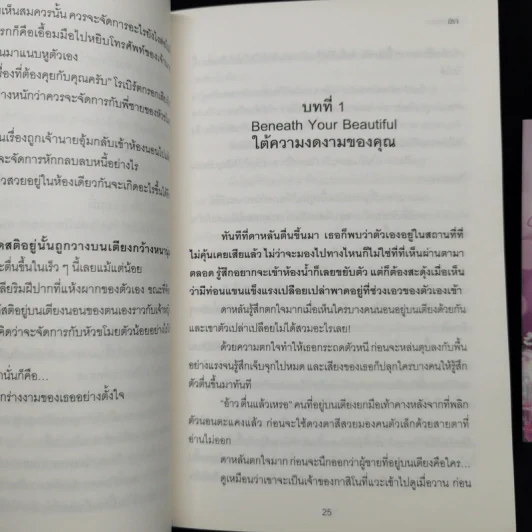 เห็นสมควรนั้น ควรจะจัดการอะไรยังไง
รกก็คือเอื้อมมือไปหยิบโทรศัพท์ของเจ้า
นมาแนบหูตัวเอง
รื่องที่ต้องคุยกับคุณครับ" โรเบิร์ตกรอก
างหนักว่าควรจะจัดการกับพี่ชายของหัว
นเรื่องถูกเจ้านายอุ้มกลับเข้าห้องนอน
จะจัดการหักกลบลบหนี้อย่างไร
วสวยอยู่ในห้องเดียวกันจะเกิดอะไรขึ้น
ดสติอยู่นั้นถูกวางบนเตียงกว้าง
ะตื่นขึ้นในเร็ว ๆ นี้เลยแม้แต่น้อย
ลียริมฝีปากที่แห้งผากของตัวเอง ขณะ
ดสติอยู่บนเตียงนอนของตนเองราวกับ
คิดว่าจะจัดการกับหัวขโมยตัวน้อย
นั่นก็คือ...
กร่างงามของเธออย่างตั้งใจ
บทที่ 1
Beneath Your Beautiful
ใต้ความงดงามของคุณ
ทันทีที่ตาหลันตื่นขึ้นมา เธอก็พบว่าตัวเองอยู่ในสถานที่ที่
ไม่คุ้นเคยเสียแล้ว ไม่ว่าจะมองไปทางไหนก็ไม่ใช่ที่ที่เห็นผ่านตามา
ตลอด รู้สึกอยากจะเข้าห้องน้ำก็เลยขยับตัว แต่ก็ต้องสะดุ้งเมื่อเห็น
ว่ามีท่อนแขนแข็งแรงเปลือยเปล่าพาดอยู่ที่ช่วงเอวของตัวเองเข้า
ตาหลันรู้สึกตกใจมากเมื่อเห็นใครบางคนนอนอยู่บนเตียงด้วยกัน
และเขาตัวเปล่าเปลือยไม่ได้สวมอะไรเลย!
ด้วยความตกใจทำให้เธอกระถดตัวหนี ก่อนจะหล่นตุบลงกับพื้น
อย่างแรงจนรู้สึกเจ็บจุกไปหมด และเสียงของเธอก็ปลุกใครบางคนให้รู้สึก
ตัวตื่นขึ้นมาทันที
"อ้าว ตื่นแล้วเหรอ" คนที่อยู่บนเตียงยกมือเท้าคางหลังจากที่พลิก
ตัวนอนตะแคงแล้ว ก่อนจะใช้ดวงตาสีสวยมองคนตัวเล็กด้วยสายตาที่
อ่านไม่ออก
ตาหลันตกใจมาก ก่อนจะนึกออกว่าผู้ชายที่อยู่บนเตียงคือใคร...
ดูเหมือนว่าเขาจะเป็นเจ้าของกาสิโนที่แวะเข้าไปดูเมื่อวาน ก่อน
25